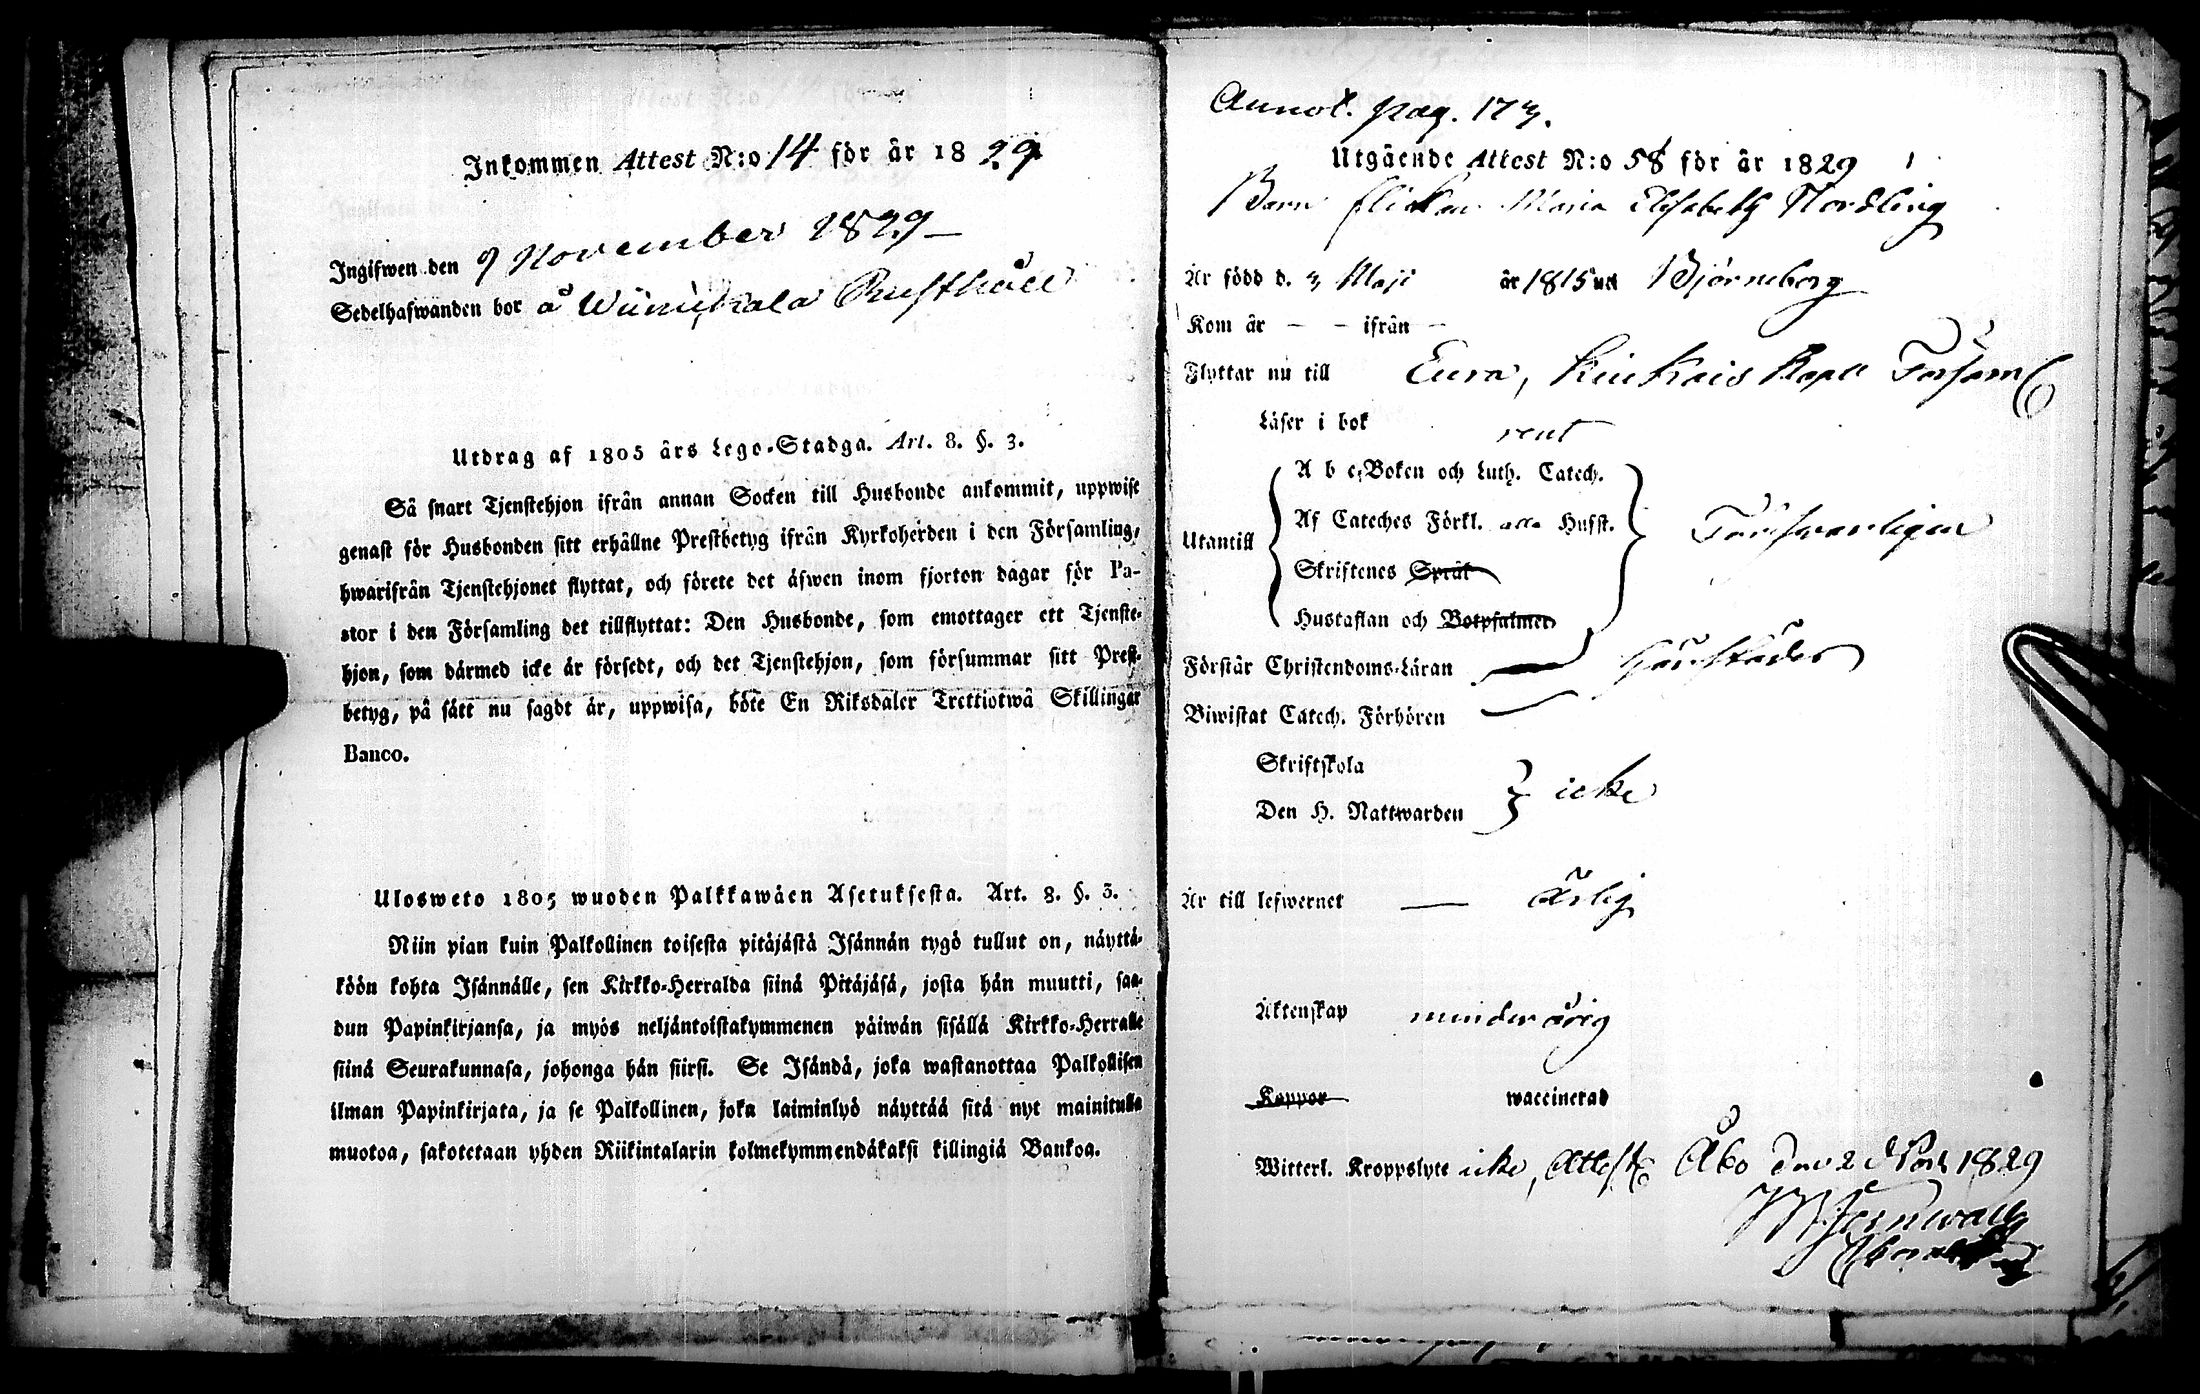 Inkommen Attest N:o 14 för år 18 29
Ingifwen den 9 November 1829
Sedelhafwanden bor å Wiinikala Rusthåll
Utdrag af 1805 års Lego-Stadga. Art. 8. §. 3.
Så snart Tjenstehjon ifrån annan Socken till Husbonde ankommit, uppwise
genast för Husbonden sitt erhållne Prestbetyg ifrån Kyrkoherden i den Församling,
hwarifrån Tjenstehjonet flyttat, och förete det äfwen inom fjorton dagar för Pa-
stor i den Församling det tillflyttat: Den Husbonde, som emottager ett Tjenste-
hjon, som därmed icke är försedt, och det Tjenstehjon, som försummar sitt Prest-
betyg, på sätt nu sagdt är, uppwisa, böte En Riksdaler Trettiotwå Skillingar
Banco.
Ulosweto 1805 wuoden Palkkawäen Asetuksesta. Art. 8. §. 3.
Niin pian kuin Palkollinen toisesta pitäjästä Isännän tygö tullut on, näyttä-
köön kohta Isännälle, sen Kirkko-Herralda siinä Pitäjäsä, josta hän muutti, saa-
dun Papinkirjansa, ja myös neljäntoistakymmenen päiwän sisällä Kirkko-Herralle
siinä Seurakunnasa, johonga hän siirsi. Se Isändä, joka wastanottaa Palkollisen
ilman Papinkirjata, ja se Palkollinen, joka laiminlyö näyttää sitä nyt mainitulla
muotoa, sakotetaan yhden Riikintalarin kolmekymmendäkaksi killingiä Bankoa.
Annot. pag. 173.
Utgående Attest N:o 58 för år 1829
Barn flickan Maria Elisabeth Nordling
Är född d. 3 Maji år 1815 uti Björneborg
Kom år – – ifrån –
Flyttar nu till Eura, Kiukais Kapell Församl
Läser i bok rent
A b c-Boken och Luth. Catech.
Af Cateches Förkl. alla Hufst.
Utantill Försvarligen
Skriftenes Språk
Hustaflan och Botpsalmer
Förstår Christendoms-Läran
Biwistat Catech. Förhören
Skriftskola
icke
Den H. Nattwarden
Är till lefwernet — ärlig
Äktenskap minderårig
Koppor waccinerad
Witterl. Kroppslyte icke, Attest. Åbo den 2 Nov 1829